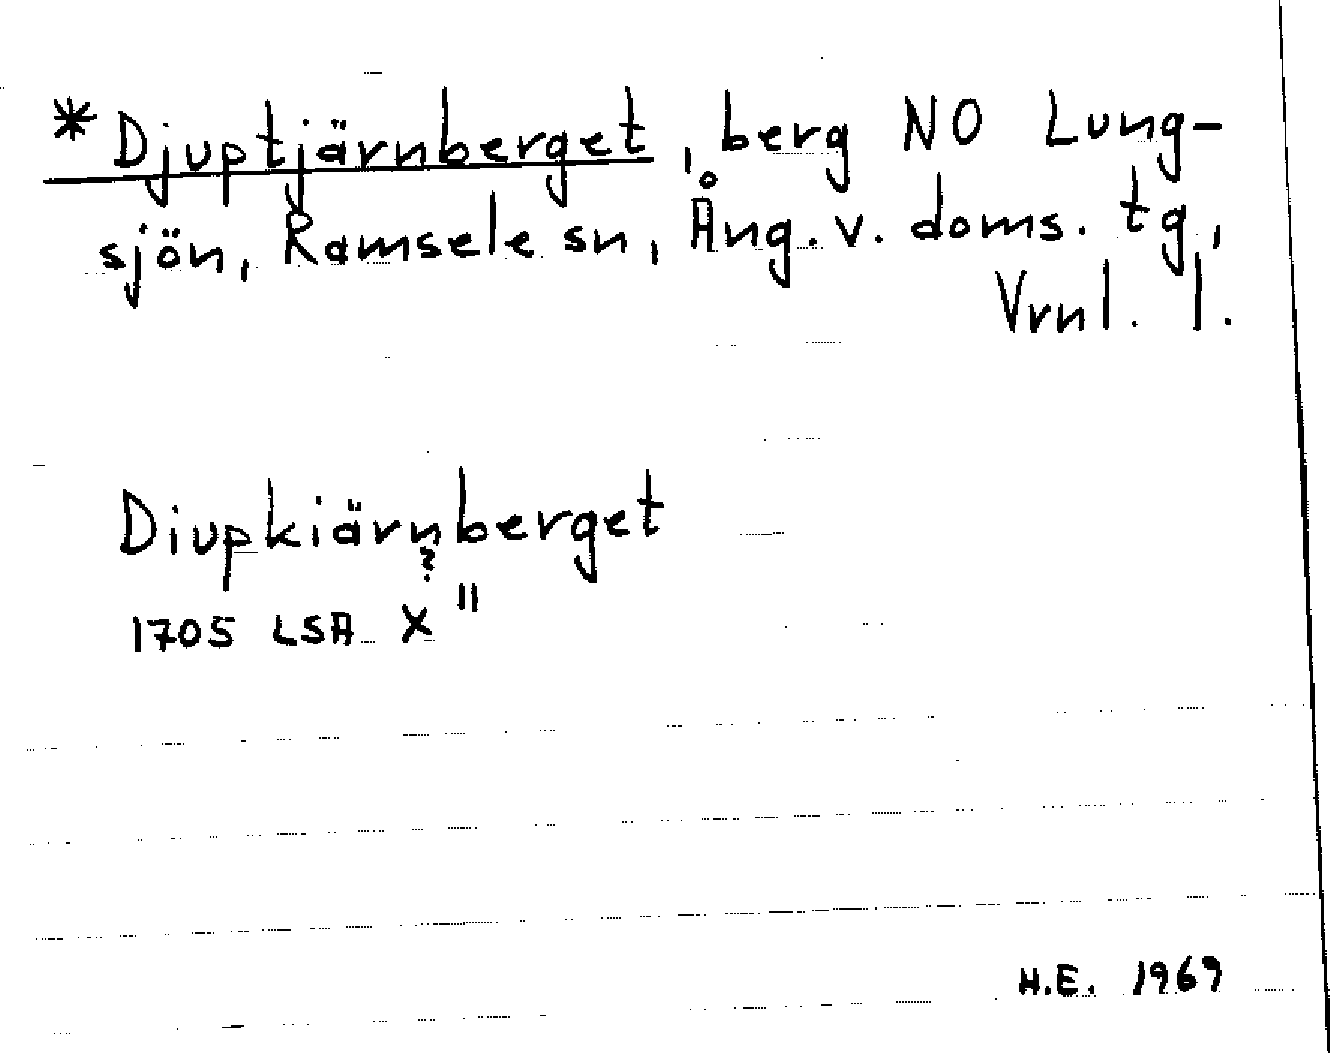 * Djuptjärnberget, berg NO Lung-
sjön, Ramsele sn, Ång. v. doms. tg,
Vrnl. l.
Diupkiärnberget
?
1705 LSA X "
H.E. 1969